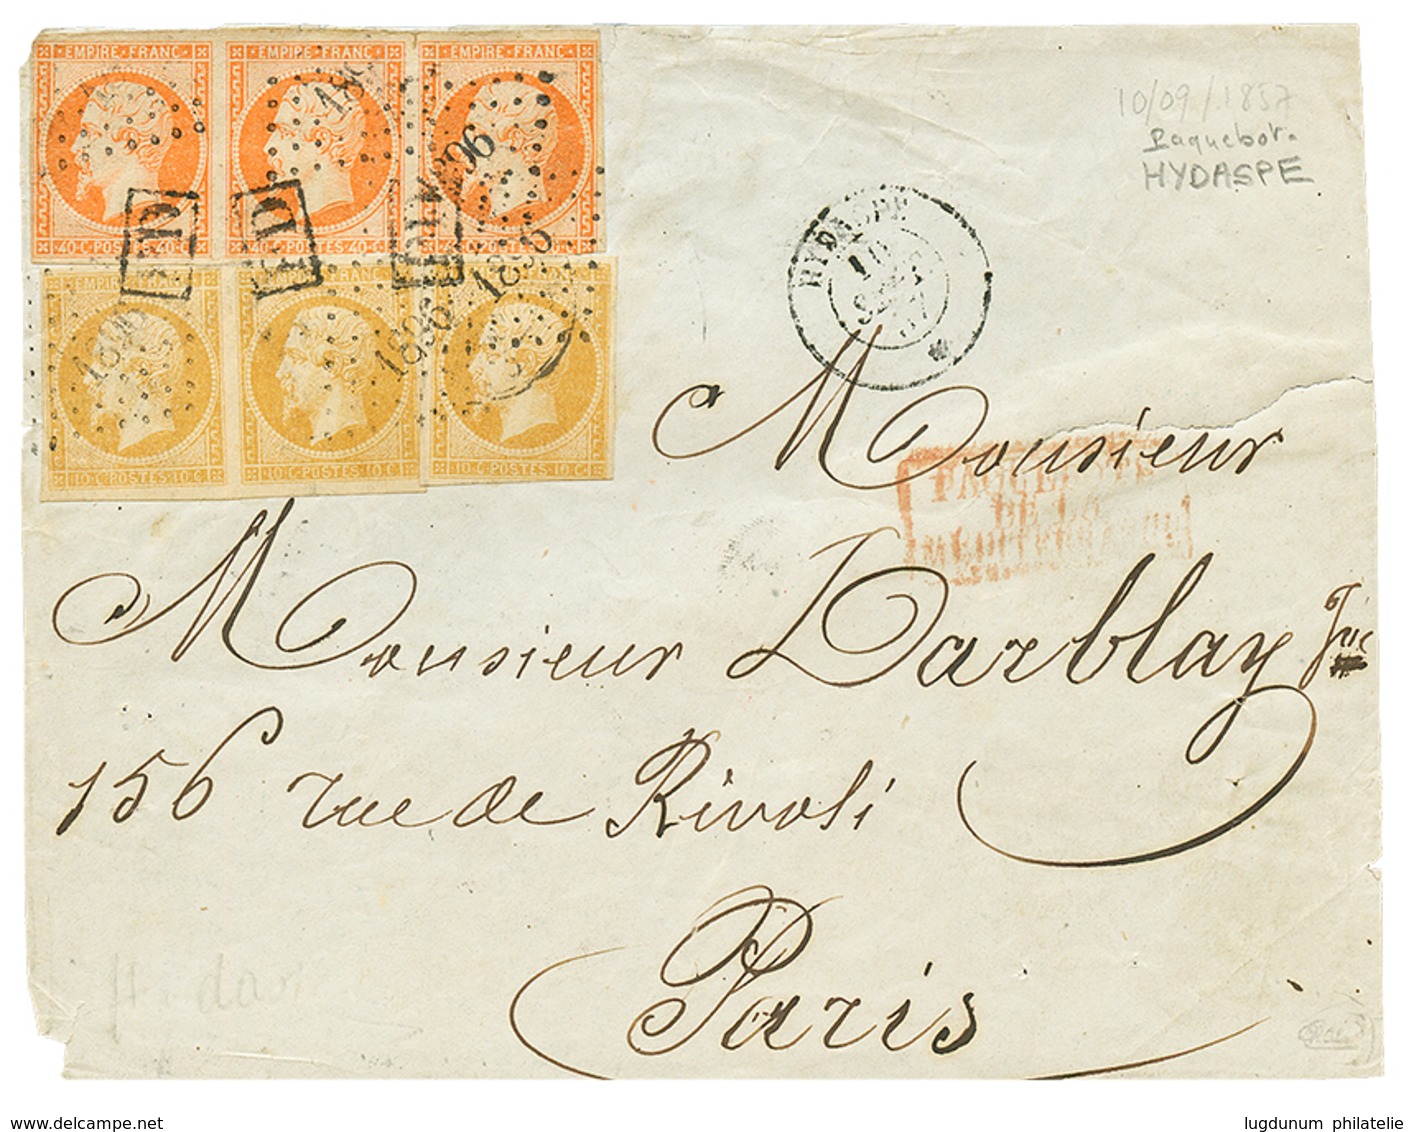 EMPIRE·FRANC· EMPIRE·FRANC· EMPIRE·FRANC·
1896
1896
PD PD PD
40·C·POSTES·40·C· 40·C·POSTES·40·C· 40·C·POSTES·40·C·
1896 1896 1896
10·C·POSTES·10·C· 10·C·POSTES·10·C· 10·C·POSTES·10·C·
10/09/1857
Paquebot.
HYDASPE
HYDASPE
10
SEPT
57
PAQUEBOTS
DE LA
MÉDITERRANÉE
Monsieur
Monsieur Darblay Jne
156 rue de Rivoli
Paris
www.delcampe.net
lugdunum philatelie